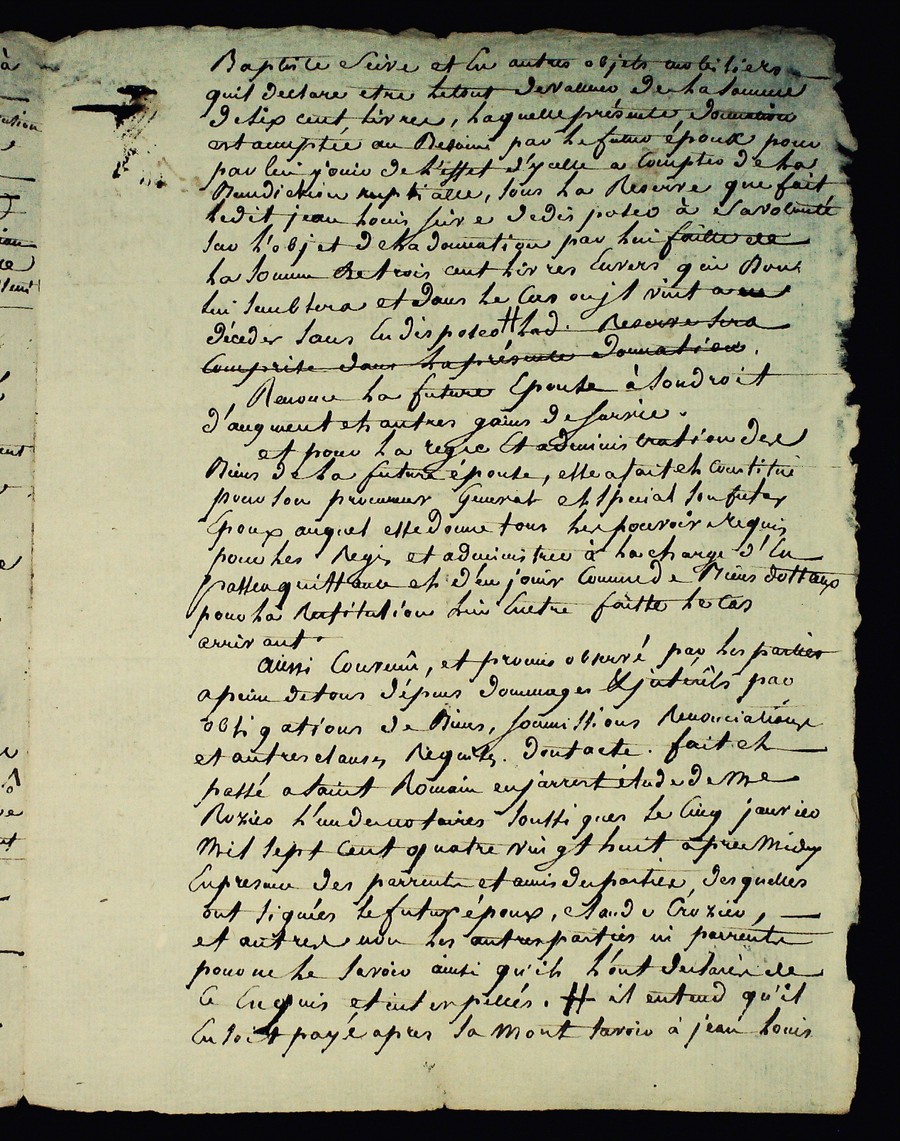 Baptiste Seive et En autres objets mobiliers
quil declare etre le tout de valeur de La Somme
de six cent Livres, Laquelle présente donnation
est acceptée au Besoins par le futur époux pour
par lui jouir de L'effet d'ycelle a Compter de La
Benediction nuptialle, sous La Reserve que fait
Ledit jean Louis Seive de disposer à sa volonté
sur L'objet de La donnation par Lui faitte de
La Somme de trois cent Livres Envers qui Bon
lui semblera et dans le Cas ou jl vint a
décéder sans En disposer # Lad. Reserve sera
Comprise dans La présente donnation.
Renonce La future Epouse à son droit
d'augment et autres gains de survie.
et pour La regie Et administration des
Biens de La future épouse, elle a fait et Constitué
pour son procureur General et special son futur
Epoux auquel elle donne tous les pouvoir requis
pour Les Regir et administrer à La charge d'En
passer quittance et d'en jouir Comme de Biens dottaux
pour La Restitution lui En etre faitte le Cas
arrivant.
aussi Convenû, et promis observé par Les parties
a peine de tous dépens dommages & jnterêts par
obligations de Biens, soumissions Renonciations
et autres clauses Requises. dont acte. fait et
passé a Saint Romain en jarrest étude de Me
Rozier L'un de notaires soussignes Le Cinq janvier
Mil sept cent quatre vingt huit apres Midy
En presence des parrents et amis des parties, desquelles
ont signées le futur époux, Claude Crozier,
et autres non Les autres parties ni parrents
pour ne Le savoir ainsi qu'ils L'ont declarés de
Ce Enquis et interpellés. # il entend qu'il
En soit payé apres sa Mort savoir à jean Louis